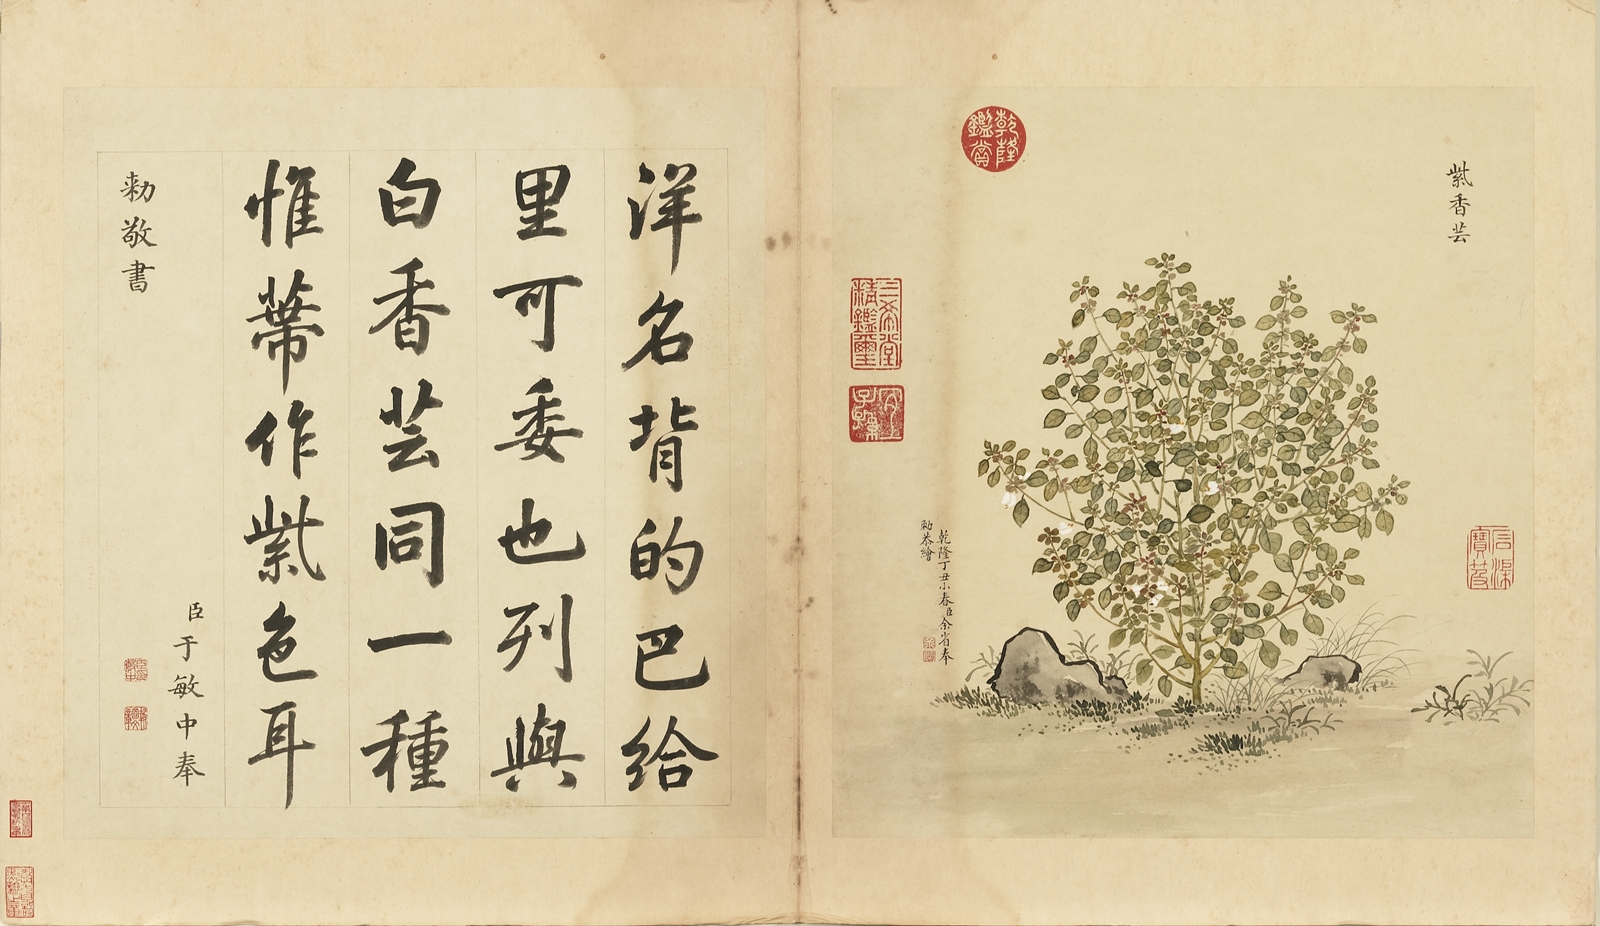 紫香芸
乾隆鑑賞
三希堂精鑑璽
宜子孫
乾隆丁丑小春臣余省奉
勅恭繪
洋名背的巴給
里可委也列與
白香芸同一種
惟蔕作紫色耳
臣于敏中奉
勅敬書